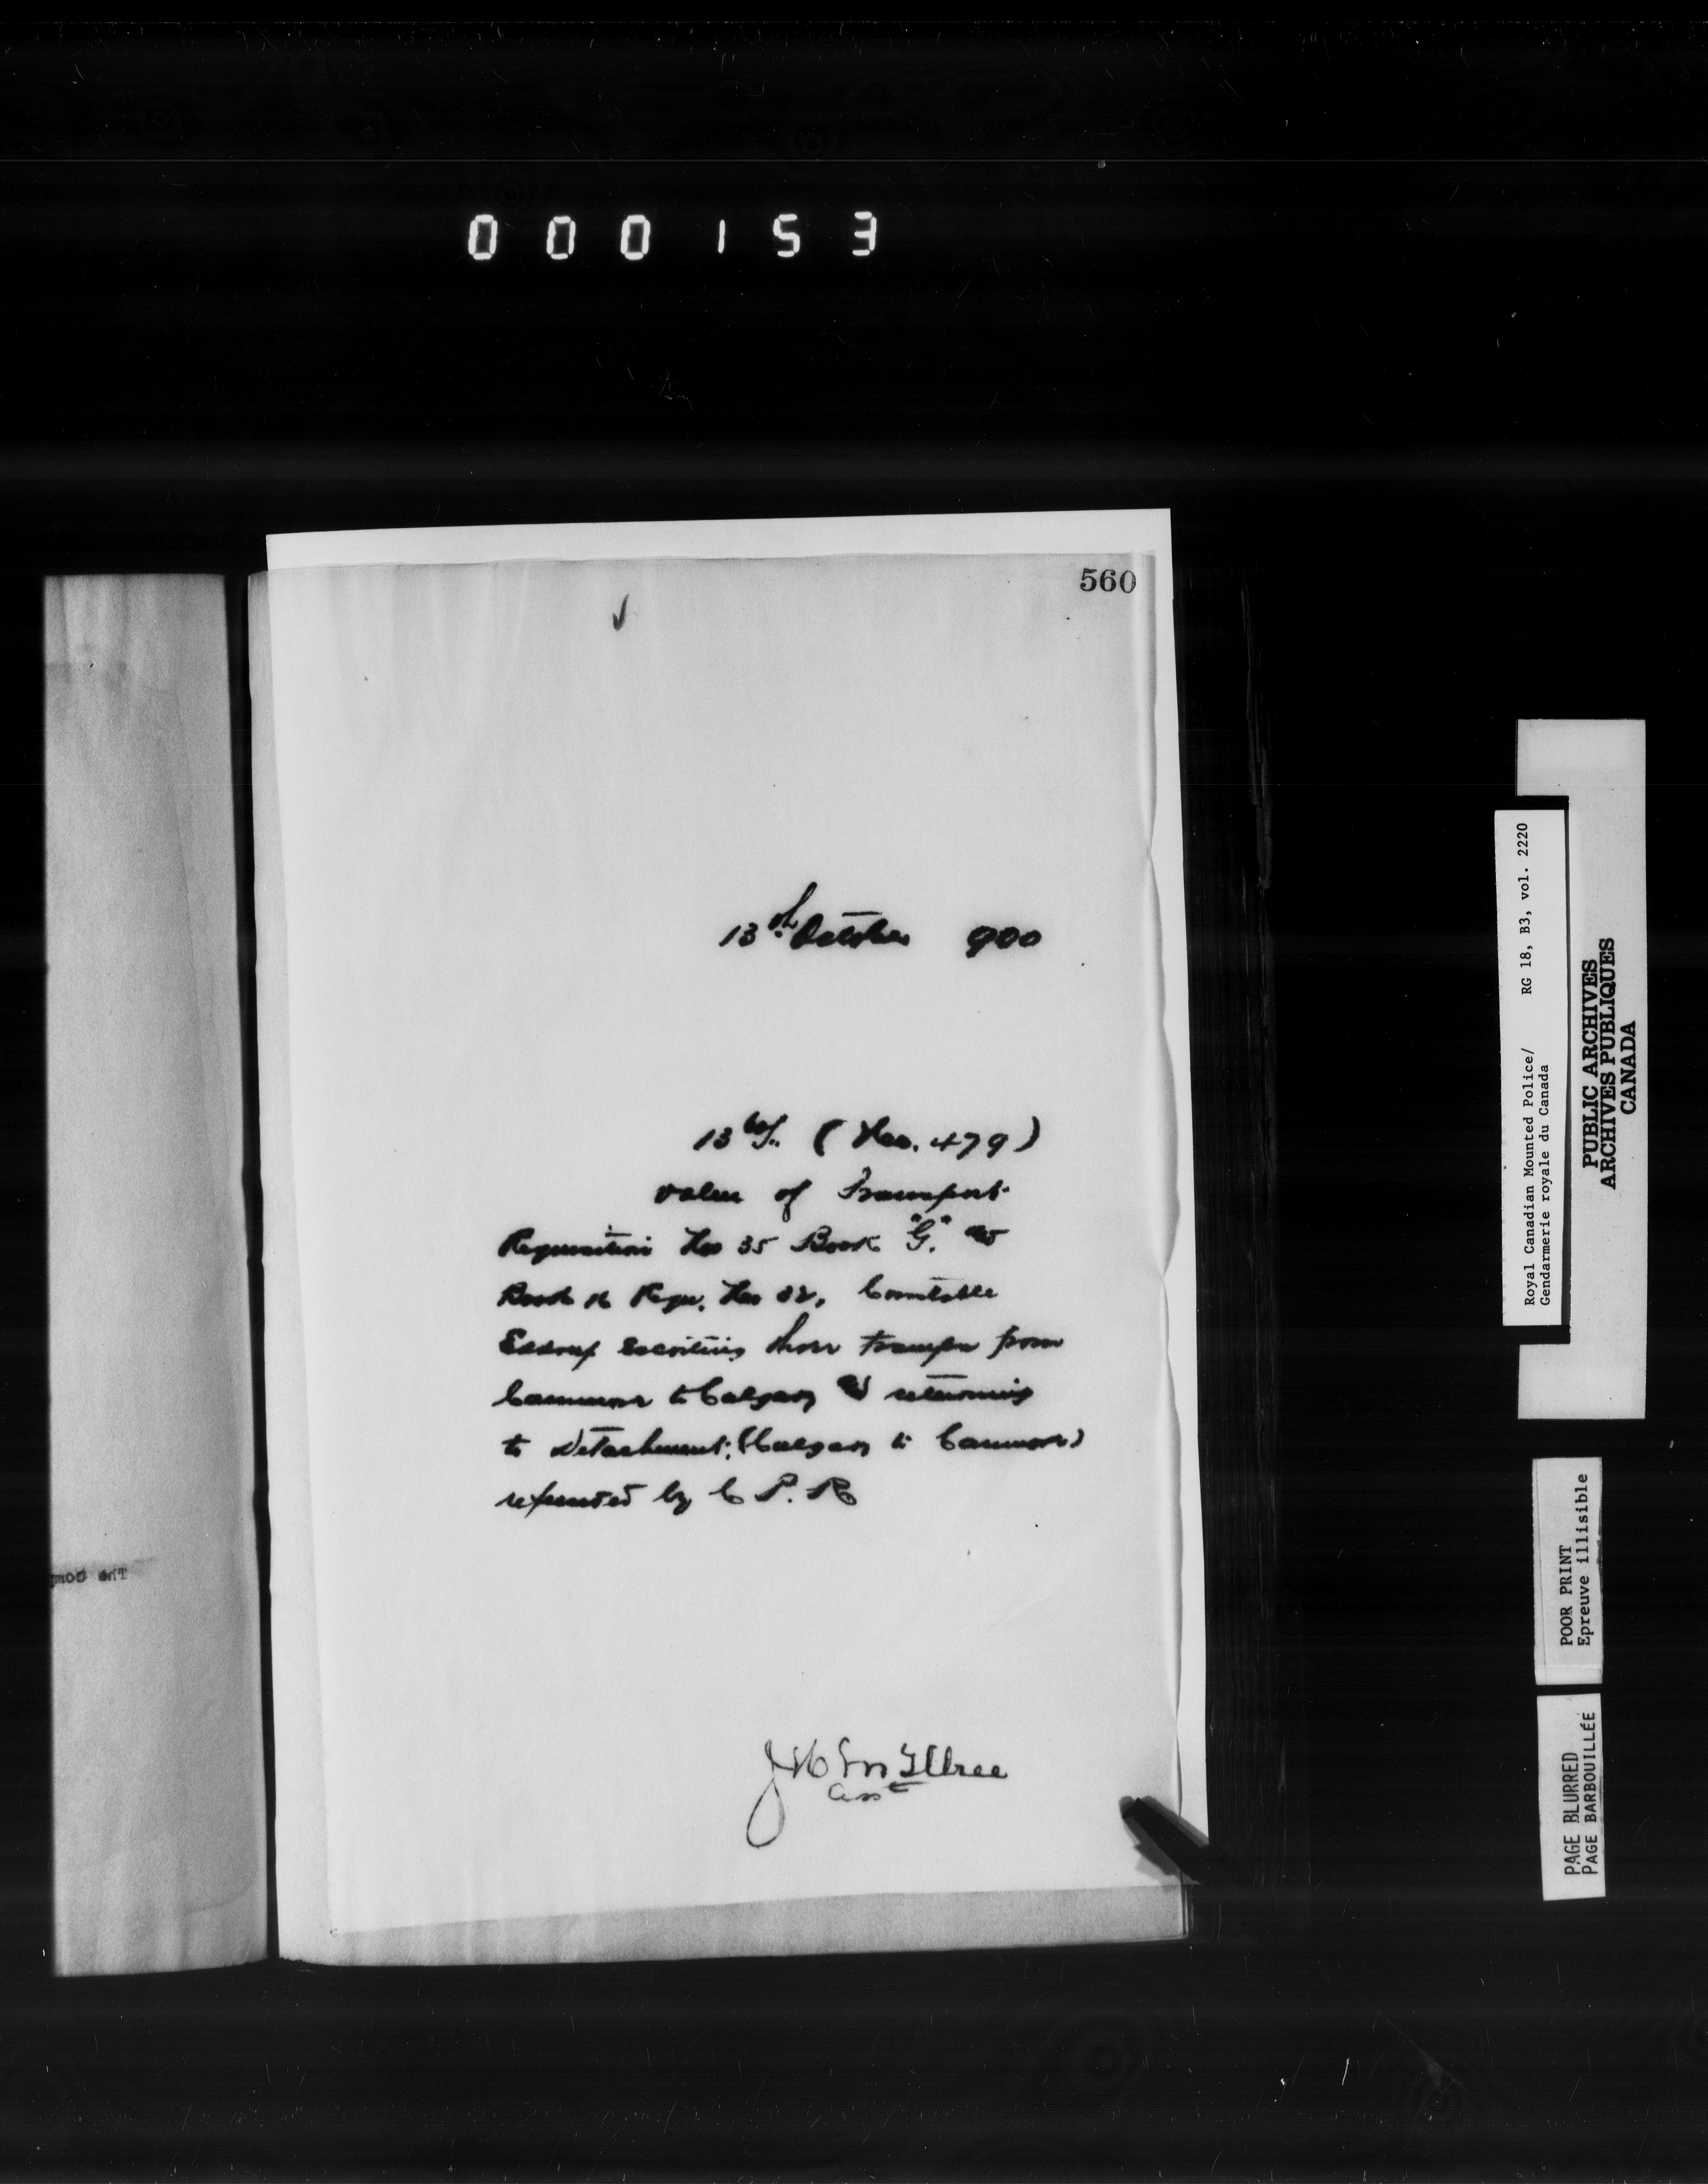 000153
560
13th October 900
13 (No. 479)
value of Transport
Requisition No 35 Book "G". and
Book H Requ. No 32, Constable
escorting horse from
Canmore to Calgary & returning
to Detachment; (Calgary to Canmore)
refunded by C P. R
J H McIllree
Asst
The Com
Royal Canadian Mounted Police/ RG 18, B3, vol. 2220
Gendarmerie royale du Canada
PUBLIC ARCHIVES
ARCHIVES PUBLIQUES
CANADA
POOR PRINT
Epreuve illisible
PAGE BLURRED
PAGE BARBOUILLÉE